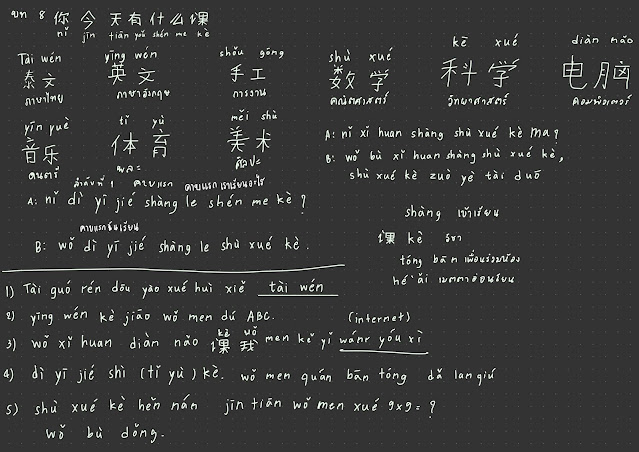 บท 8 你今天有什么课
nǐ jīn tiān yǒu shén me kè
Tài wén
泰文
ภาษาไทย
yīng wén
英文
ภาษาอังกฤษ
shǒu gōng
手工
การงาน
shù xué
数学
คณิตศาสตร์
kē xué
科学
วิทยาศาสตร์
diàn nǎo
电脑
คอมพิวเตอร์
yīn yuè
音乐
ดนตรี
tǐ yù
体育
พละ
měi shù
美术
ศิลปะ
ลำดับที่ 1 คาบแรก คาบแรกเราเรียนอะไร
A: nǐ dì yī jié shàng le shén me kè ?
คาบแรกฉันเรียน
B: wǒ dì yī jié shàng le shù xué kè .
A: nǐ xǐ huan shàng shù xué kè ma ?
B: wǒ bù xǐ huan shàng shù xué kè,
shù xué kè zuò yè tài duō
shàng เข้าเรียน
课 kè วิชา
tóng bān เพื่อนร่วมห้อง
hé ǎi เมตตาอ่อนโยน
1) Tài guó rén dōu yào xué huì xiě tài wén
2) yīng wén kè jiāo wǒ men dú ABC.
(internet)
kè wǒ
3) wǒ xǐ huan diàn nǎo 课 我 men kě yǐ wánr yóu xì
4) dì yī jié shì (tǐ yù) kè. wǒ men quán bān tóng dǎ lan qiú
5) shù xué kè hěn nán jīn tiān wǒ men xué 9×9= ?
wǒ bù dǒng.